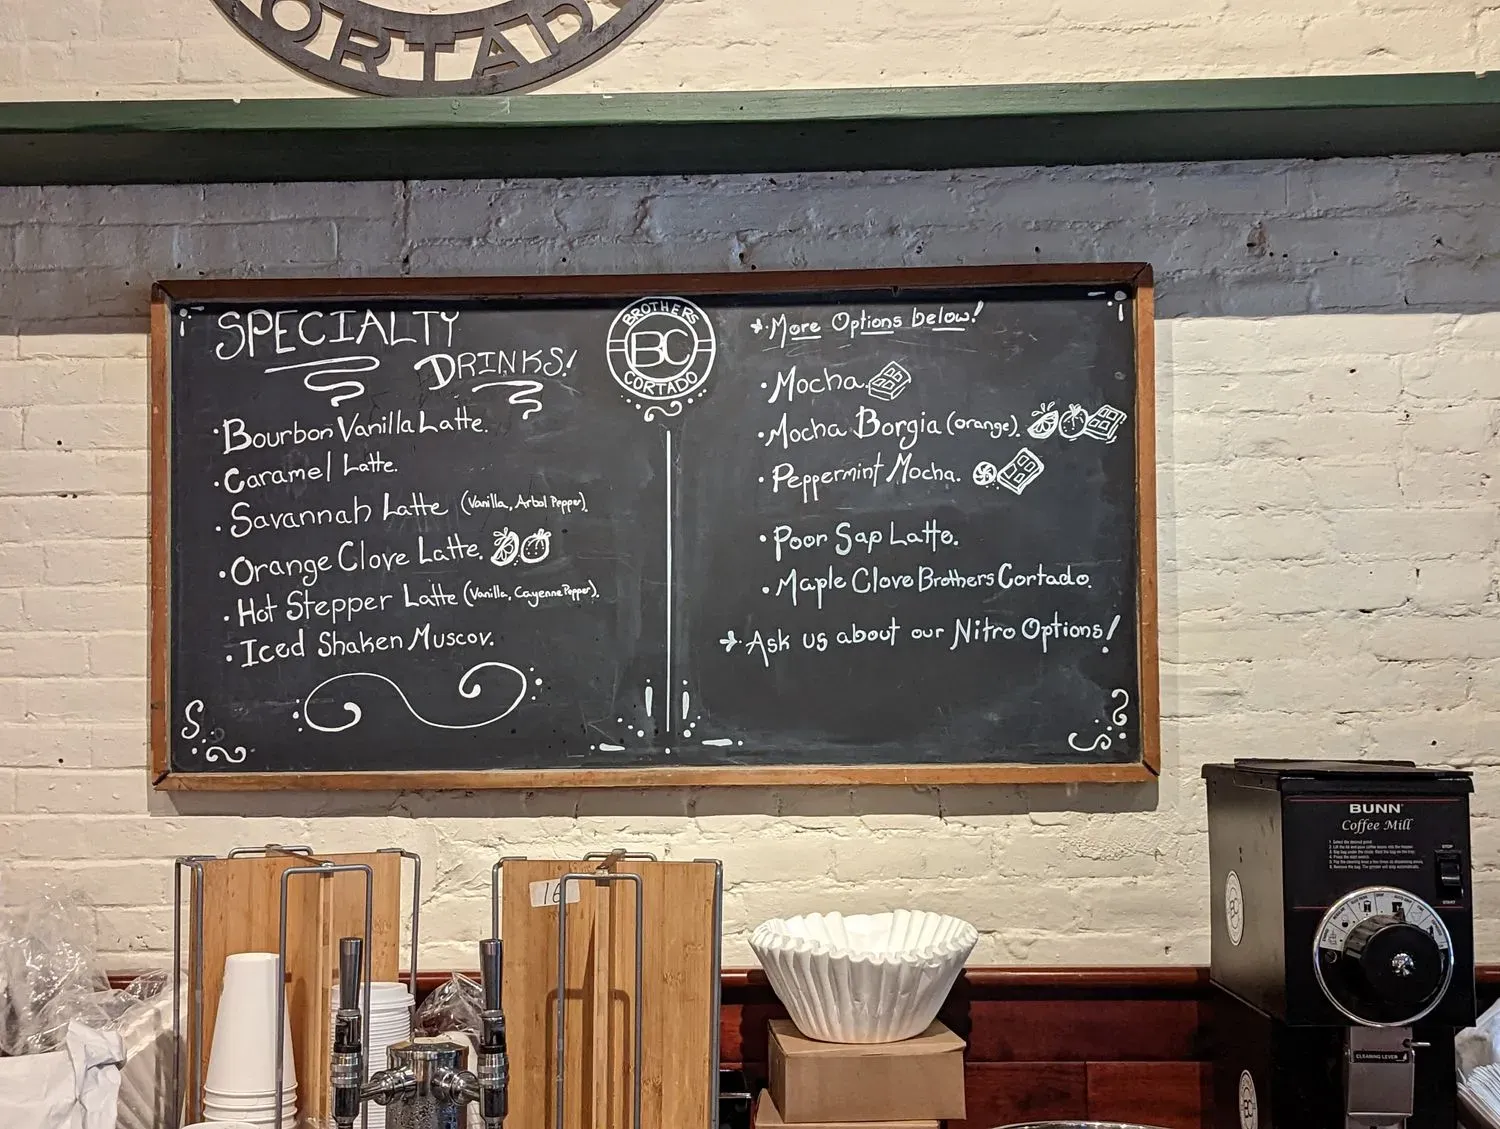 ORTAD
SPECIALTY
DRINKS!
• Bourbon Vanilla Latte.
• Caramel Latte.
• Savannah Latte (Vanilla, Arbol Pepper).
• Orange Clove Latte.
• Hot Stepper Latte (Vanilla, Cayenne Pepper).
• Iced Shaken Muscov.
BROTHERS
BC
CORTADO
More Options below!
• Mocha.
• Mocha Borgia (orange).
• Peppermint Mocha.
• Poor Sap Latte.
• Maple Clove Brothers Cortado.
Ask us about our Nitro Options!
16
BUNN
Coffee Mill
STOP
START
CLEANING LEVER
BC
BC